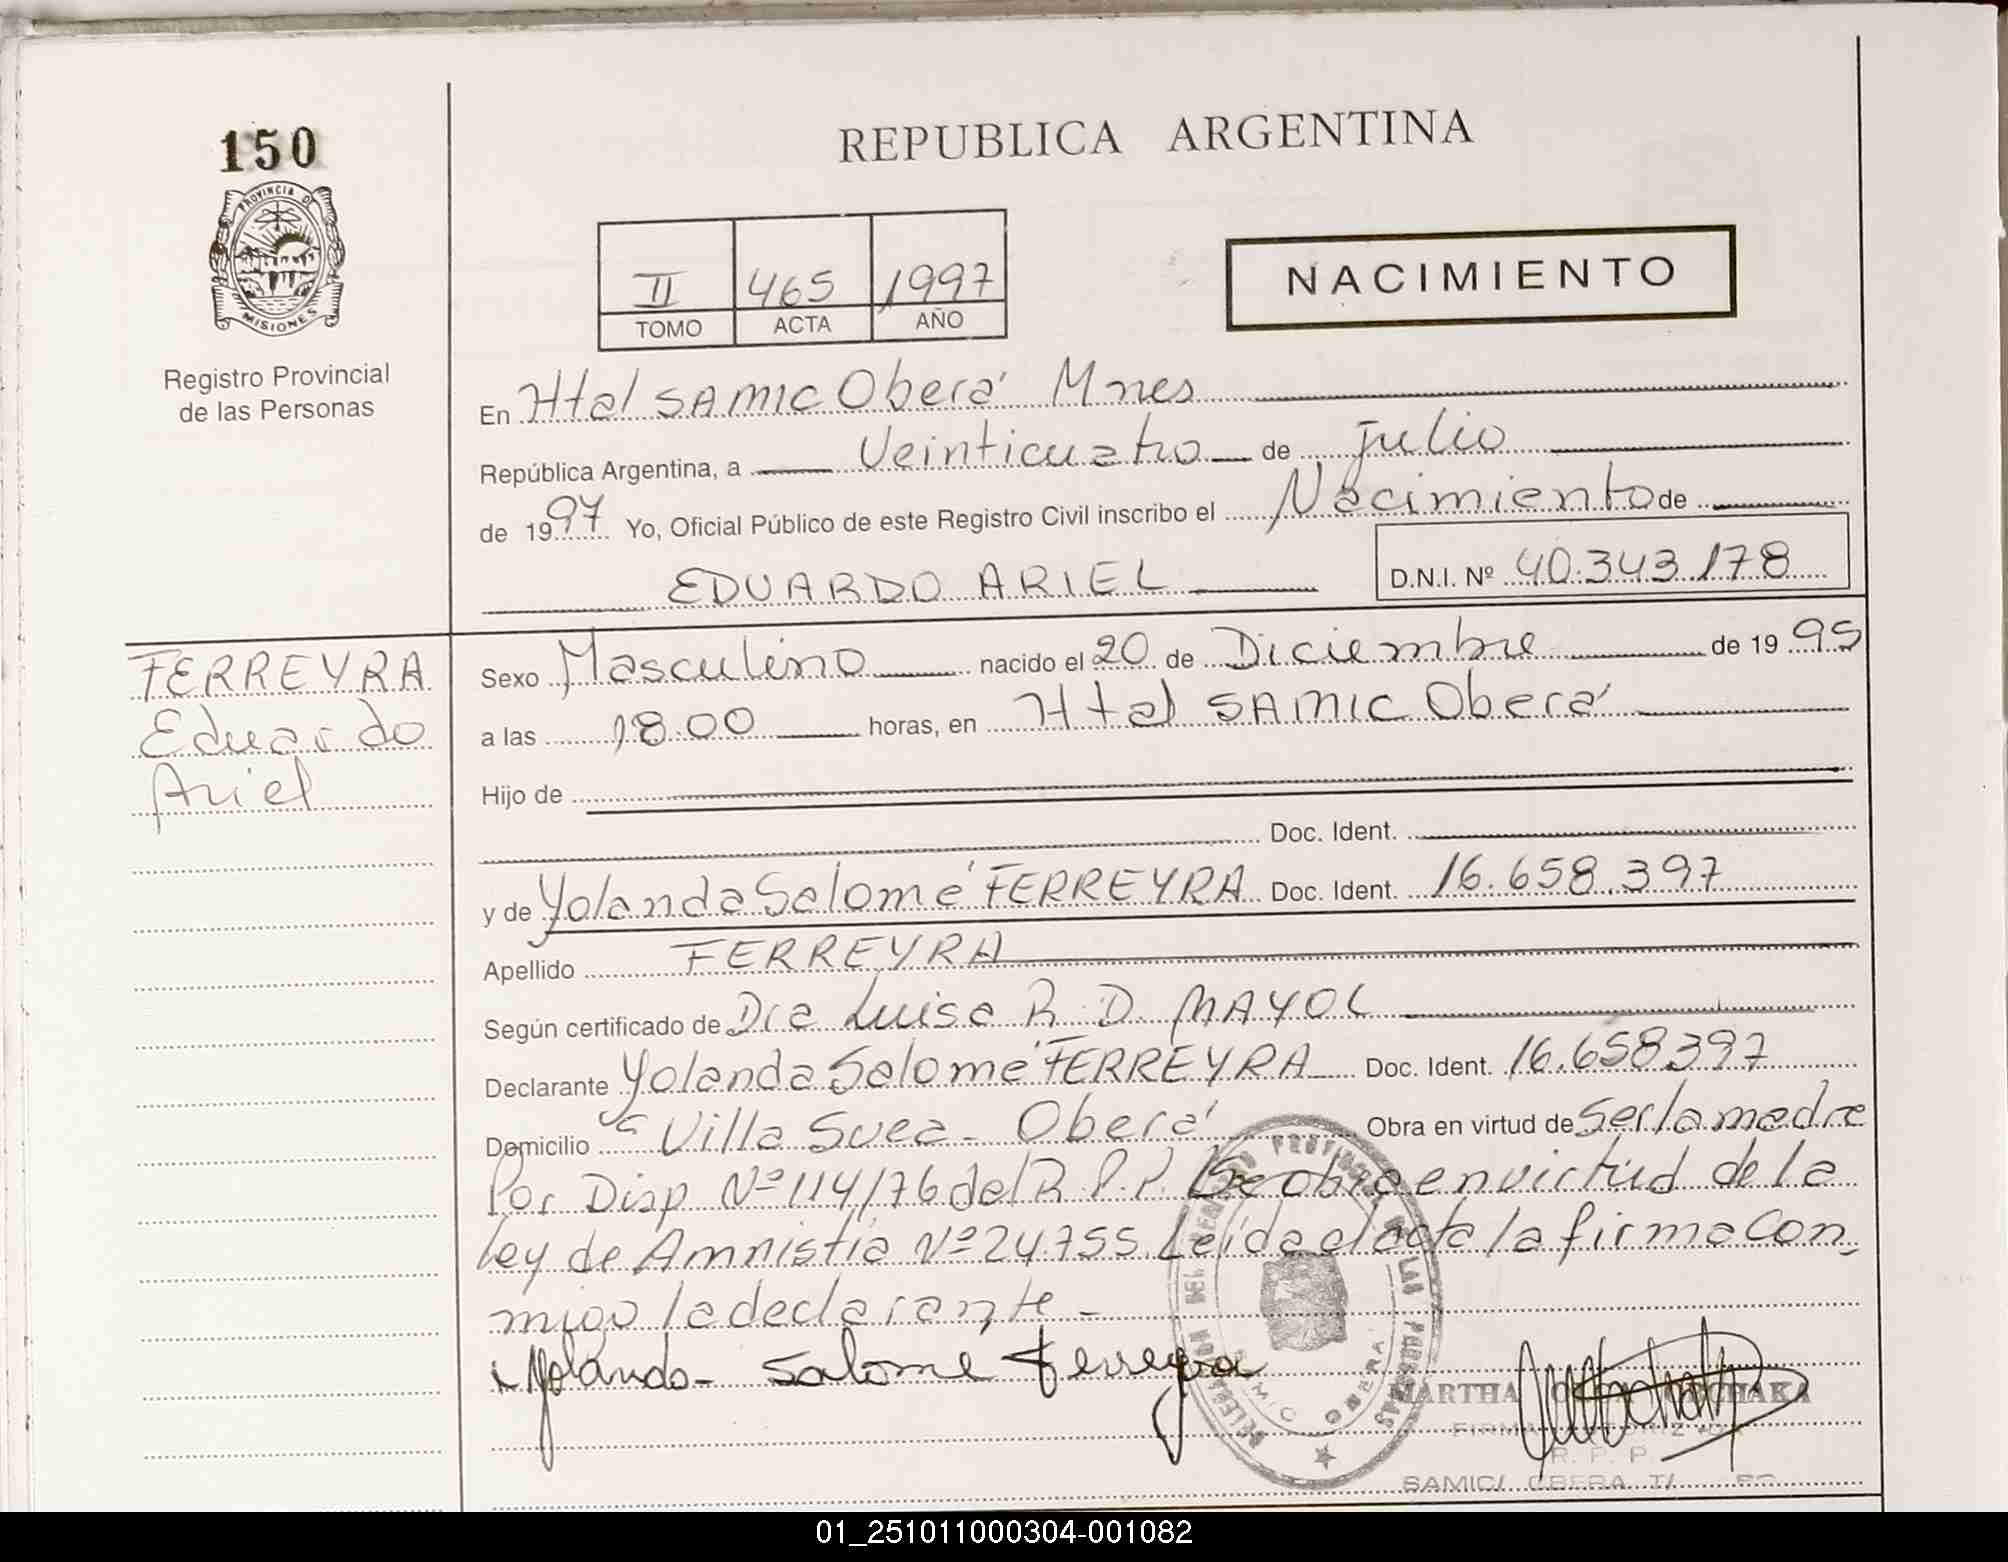 150
PROVINCIA D
MISIONES
Registro Provincial
de las Personas
REPUBLICA ARGENTINA
II 465 1997
TOMO ACTA AÑO
NACIMIENTO
En Htal SAMIC Oberá Mnes
República Argentina, a Veinticuatro de Julio
de 1997 Yo, Oficial Público de este Registro Civil inscribo el Nacimiento de
EDUARDO ARIEL D.N.I. Nº 40.343.178
FERREYRA
Eduardo
Ariel
Sexo Masculino nacido el 20 de Diciembre de 1995
a las 18.00 horas, en Htal SAMIC Oberá
Hijo de
Doc. Ident.
y de Yolanda Salomé FERREYRA Doc. Ident. 16.658.397
Apellido FERREYRA
Según certificado de Dra Luisa R. D. MAYOL
Declarante Yolanda Salomé FERREYRA Doc. Ident. 16.658397
Domicilio Villa Svea - Oberá Obra en virtud de Ser la madre
Por Disp Nº 114/76 del R.P.P. Se obra en virtud de la
ley de Amnistía Nº 24.755. Leída el acta la firma con,
migo la declarante -
Yolanda - Salomé Ferreyra
DELEGACION DEL REGISTRO PROVINCIAL DE LAS PERSONAS
MARTHA
R. P. P.
SAMIC/ OBERA
01_251011000304-001082